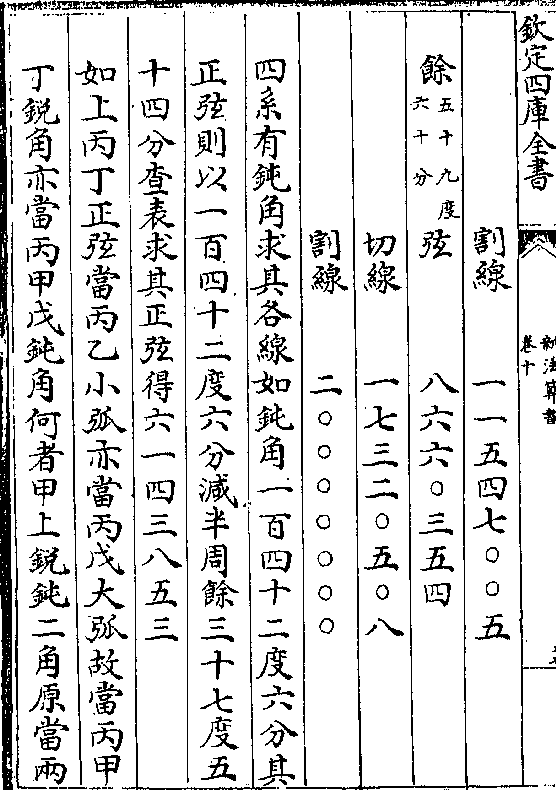 欽定四庫全書
新法算書
卷十
割線 一一五四七〇〇五
餘五十九度六十分弦 八六六〇三五四
切線 一七三二〇五〇八
割線 二〇〇〇〇〇〇〇
四系有鈍角求其各線如鈍角一百四十二度六分其
正弦則以一百四十二度六分減半周餘三十七度五
十四分查表求其正弦得六一四三八五三
如上丙丁正弦當丙乙小弧亦當丙戊大弧故當丙甲
丁鋭角亦當丙甲戊鈍角何者甲上鋭鈍二角原當兩